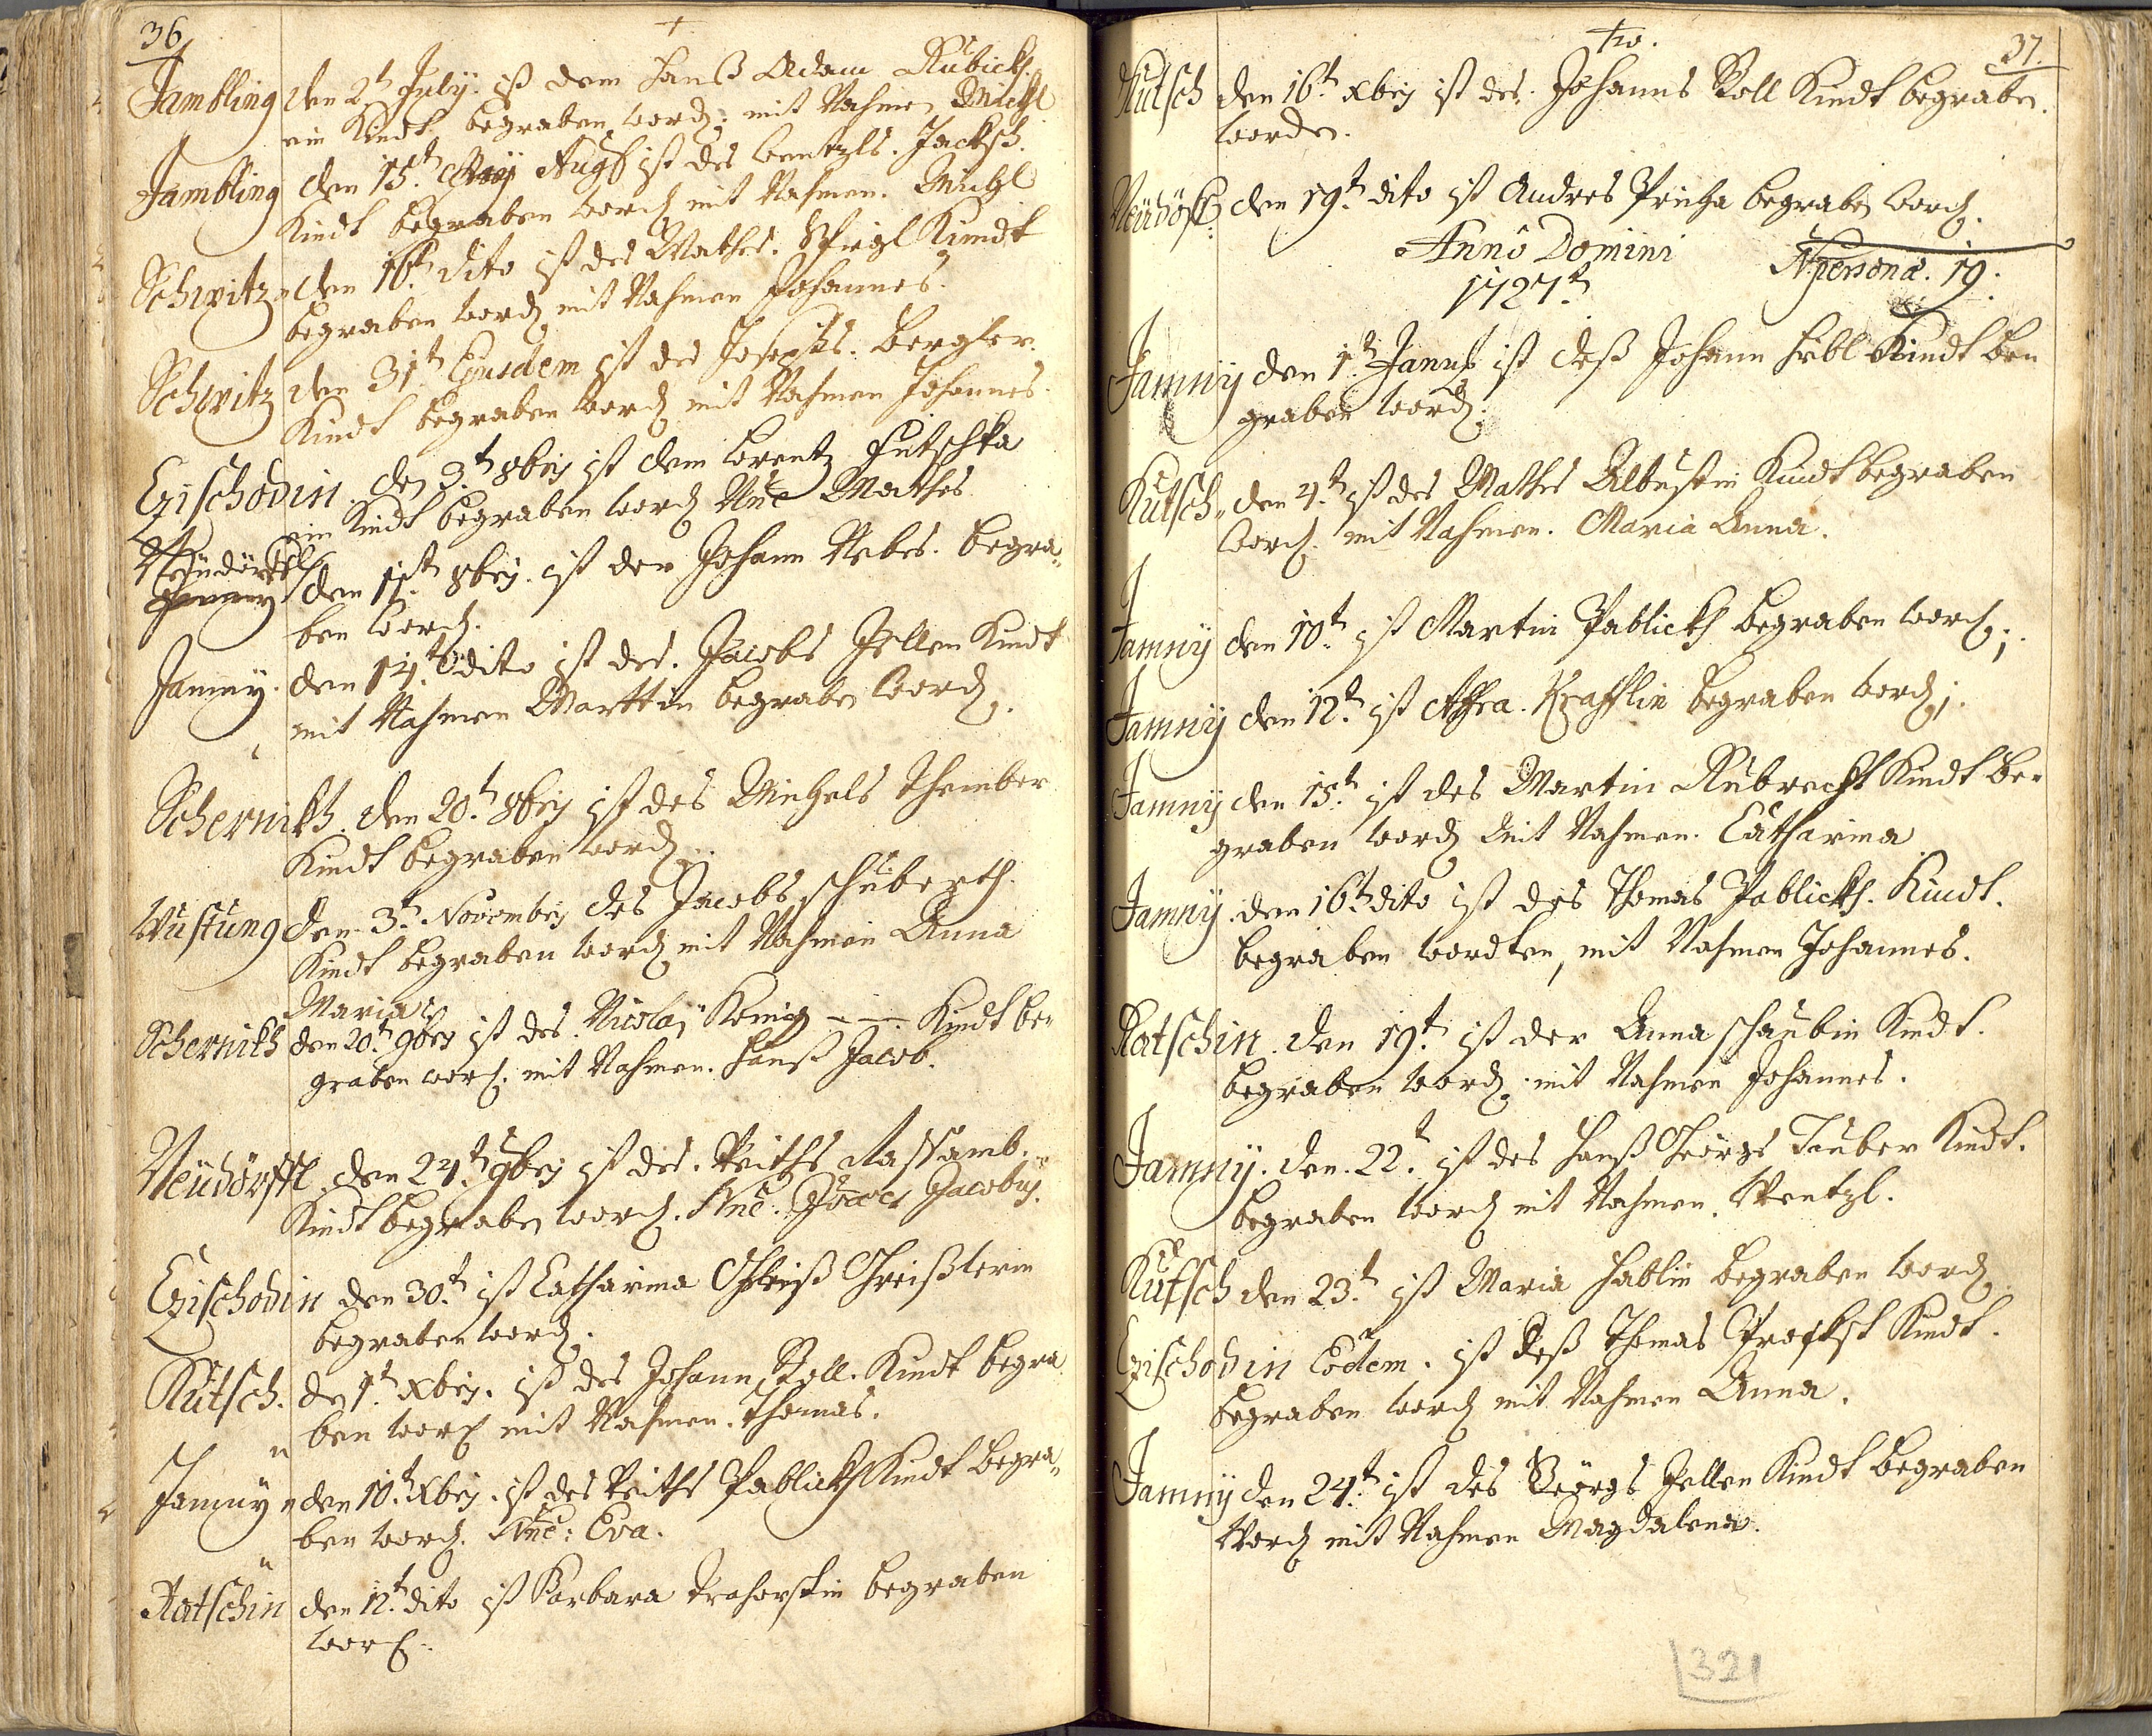 36
Jambling den 2t July. ist dem Hanß Adam Rubick.
ein Kindt begraben word; mit Nahmen Michl
Jambling den 15t. Augs ist des Wentzls. Jacksch.
Kindt begraben word mit Nahmen. Michl
Schwitz den 16t. dito ist des Mathes. Spigl Kindt
begraben word mit Nahmen Johannes.
Schwitz den 31t Ejusdem ist des Josephs. Bergler.
Kindt begraben word mit Nahmen Johannes.
Ezischodin. den 3.t 8bris ist dem Lorentz Futschka
ein Kindt begraben word Nne Mathes
Neüdörffl
den 11t. 8bris. ist der Johann Nebes. begra„
ben word.
Jamny. den 14.t dito ist des. Jacobs Zellen Kindt
mit Nahmen Marttin begraben word.
Schernikh. den 20.t 8bris ist des Michels Thember
Kindt begraben word.
Wustung den 3t. Novembris des Jacobs Schuberth.
Kindt begraben word mit Nahmen Anna
Maria
Schernikh den 20t. 9bris ist des Nicolaÿ König Kindt be„
graben word. mit Nahmen. Hanß Jacob.
Neüdörffl. den 24.t 9bris ist des. Veiths Kassamb.
Kindt begraben word. Nne. Jacobus.
Ezischodin den 30.t ist Catharina Greißlerin
begraben word.
Kutsch. de 1t. Xbris. ist des Johann Roll. Kindt begra
ben word mit Nahmen. Thomas.
Jamny den 10.t Xbris. ist des Veiths Pablickh Kindt begra„
ben word. Nne: Eva.
Ratschin den 12.t dito ist Barbara begraben
word.
37.
Kutsch den 16t. Xbris ist des. Johanns Roll Kindt begraben.
worden.
Neüdörfl den 19t. dito ist Andres Pricha begraben word.
Anno Domini
N: personae. 19.
1727t
Jamny den 1.t Janu ist deß Johann Hibl Kindt be„
graben word.
Kutsch„ den 4.t ist des Mathes Albustin Kindt begraben
word. mit Nahmen. Maria Anna.
Jamny den 10t ist Martin Pablickh begraben word;
Jamny den 12.t ist Affra. Krafftlin begraben word;
Jamny den 15.t ist des Martin Rubrecht Kindt be„
graben word mit Nahmen. Catharina
Jamny. den 16.t dito ist des Thomas Pablickh. Kindt.
begraben wordten, mit Nahmen Johannes.
Ratschin. den 19.t ist der Anna Schaubin Kindt.
begraben word. mit Nahmen Johannes.
Jamny. den. 22.t ist des Hanß Georgs Tauber Kindt.
begraben word mit Nahmen. Wentzl.
Kutsch den 23.t ist Maria Hablin begraben word
Ezischodin Eodem. ist deß Thomas Kindt.
begraben word mit Nahmen Anna.
Jamny den 24.t ist des Georgs Zellen Kindt begraben
Word mit Nahmen Magdalena.
321